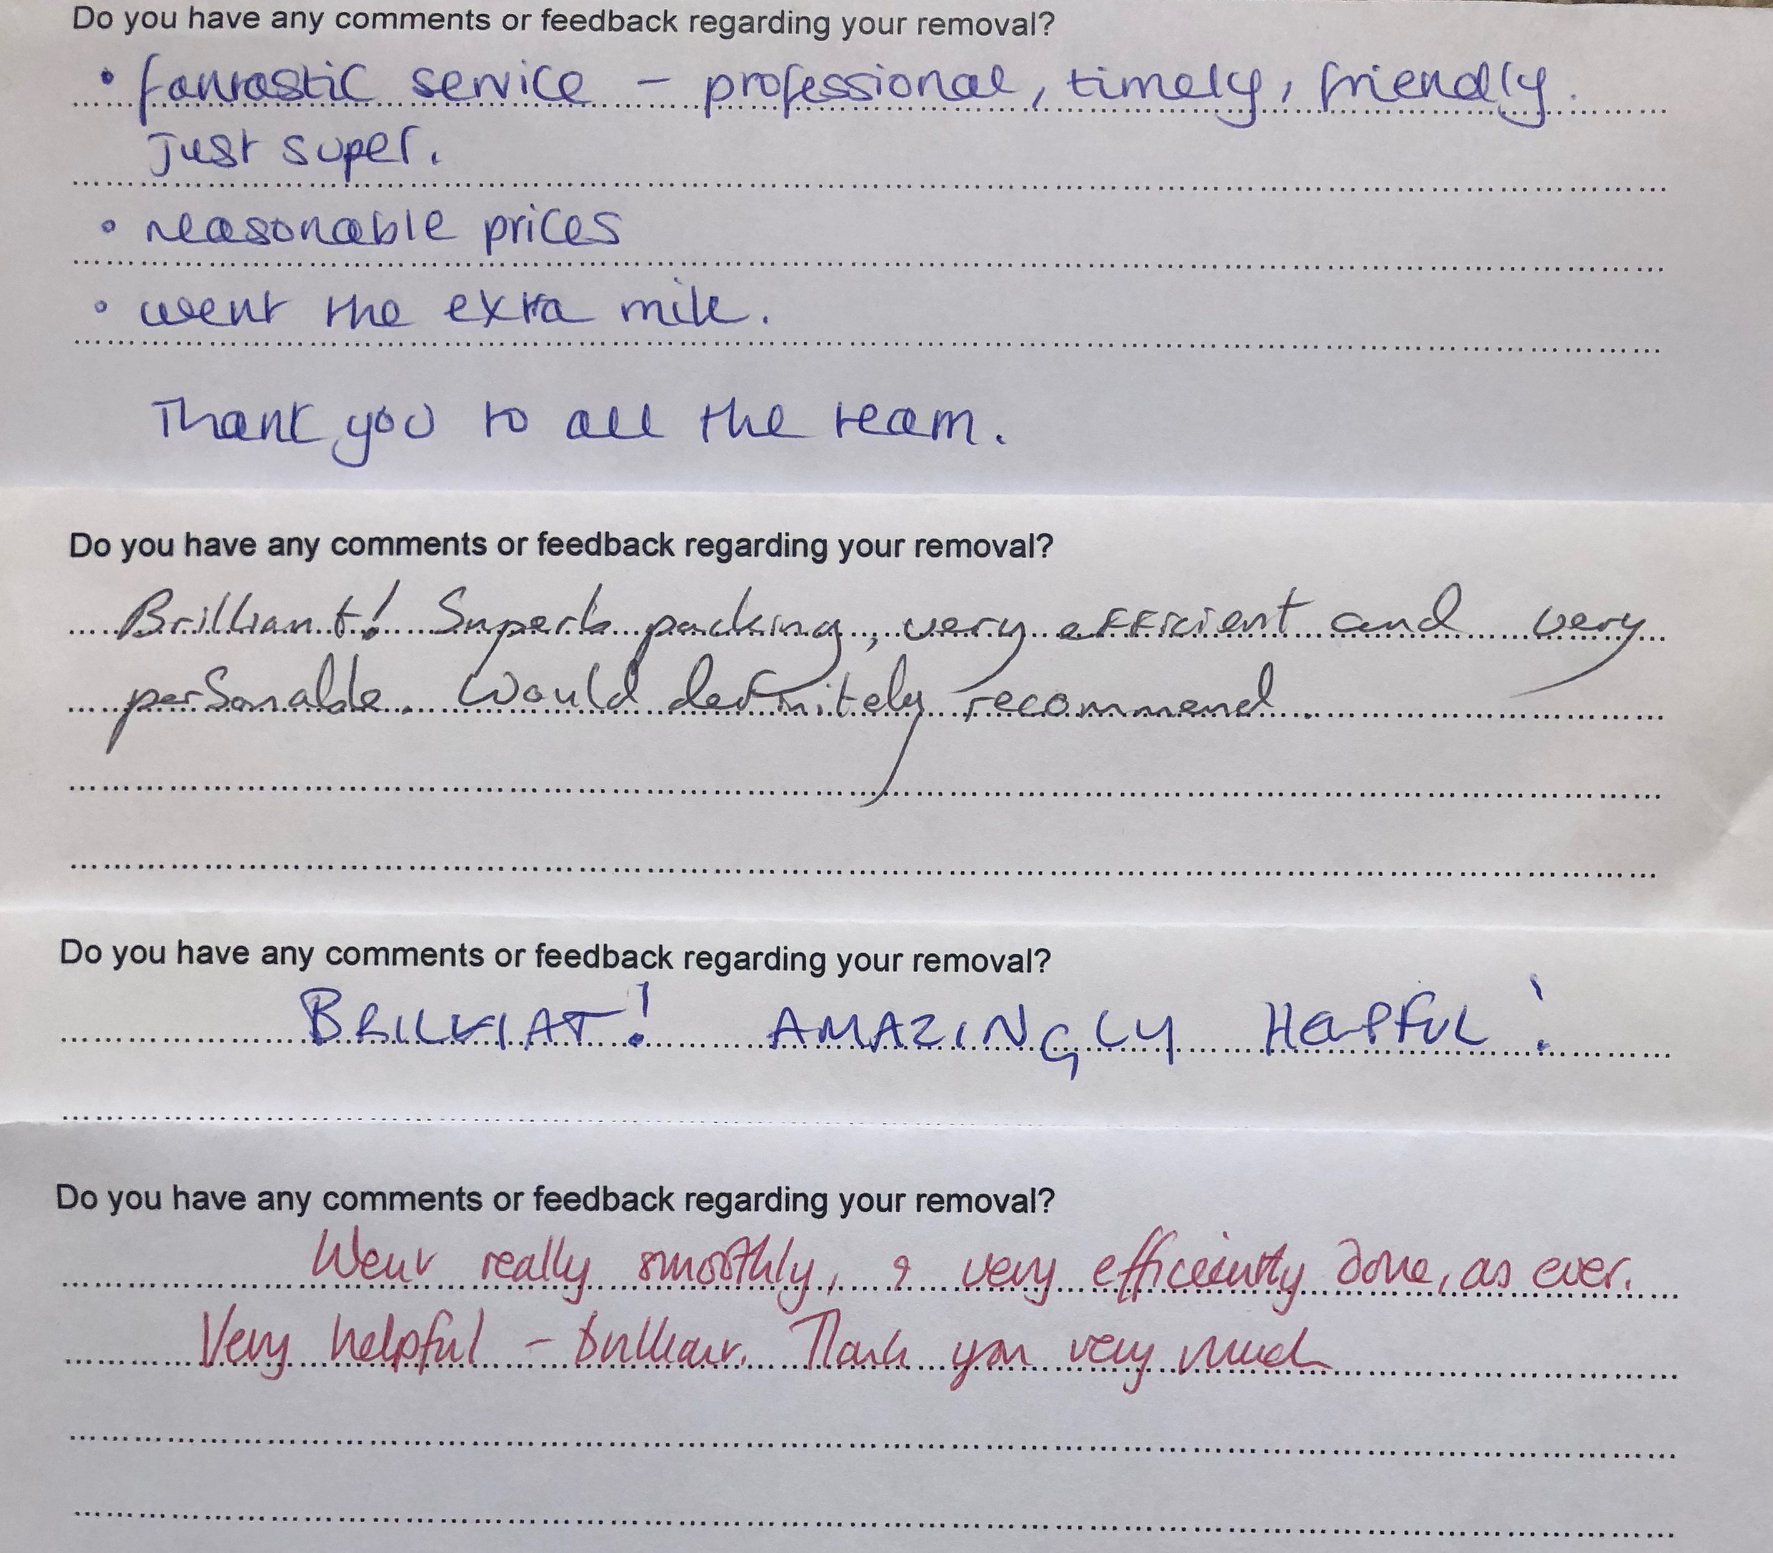 Do you have any comments or feedback regarding your removal?
• fantastic service – professional, timely, friendly.
Just super.
• reasonable prices
• went the extra mile.
Thank you to all the team.
Do you have any comments or feedback regarding your removal?
Brilliant! Superb packing, very efficient and very
personable. Would definitely recommend.
Do you have any comments or feedback regarding your removal?
BRILLIAT! AMAZINGLY HELPFUL!
Do you have any comments or feedback regarding your removal?
Went really smoothly, & very efficiently done, as ever.
Very helpful – brilliant. Thank you very much